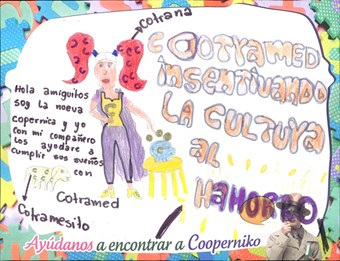 cotrana
COOTRAMED
INSENTIVANDO
LA CULTURA
AL
HAHORRO
Hola amiguitos
soy la nueva
copernica y yo
con mi compañero
los ayudare a
cumplir sus sueños
con
Cotramed
Cotramesito
Ayúdanos a encontrar a Cooperniko